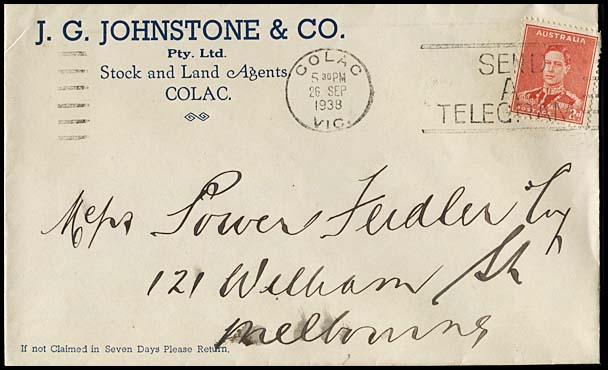 J. G. JOHNSTONE & CO.
Pty. Ltd.
Stock and Land Agents
COLAC.
COLAC
5 30 PM
26 SEP
1938
VIC.
SEND
A
TELEGRAM
AUSTRALIA
POSTAGE 2d
Messrs Power Feidler Coy
121 William St
Melbourne
If not Claimed in Seven Days Please Return.